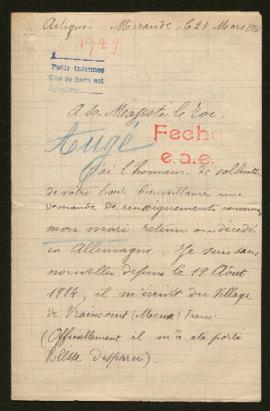 Artigues Mirande, le 28 Mars
1929
A
Pedir informes
Que se hara asi
A Sa Majesté le Roi,
Augé
Fecho
e.a.e.
J'ai l'honneur de solliciter
de votre haute bienveillance une
demande de renseignements concernant
mon mari retenu ou décédé
en Allemagne. Je suis sans
nouvelles depuis le 19 Août
1914, il m'écrivit du village
de Vraincourt (Meuse) France
(Officiellement il m'a été porté
Blessé disparu)